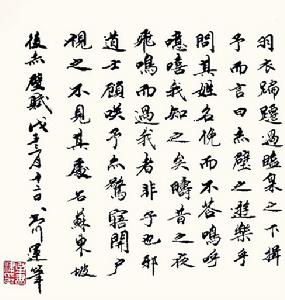 羽衣蹁躚過臨皋之下揖
予而言曰赤壁之遊樂乎
問其姓名俛而不答嗚呼
噫嘻我知之矣疇昔之夜
飛鳴而過我者非子也邪
道士顧笑予亦驚寤開户
視之不見其處右蘇東坡
後赤壁賦戊子
運筆